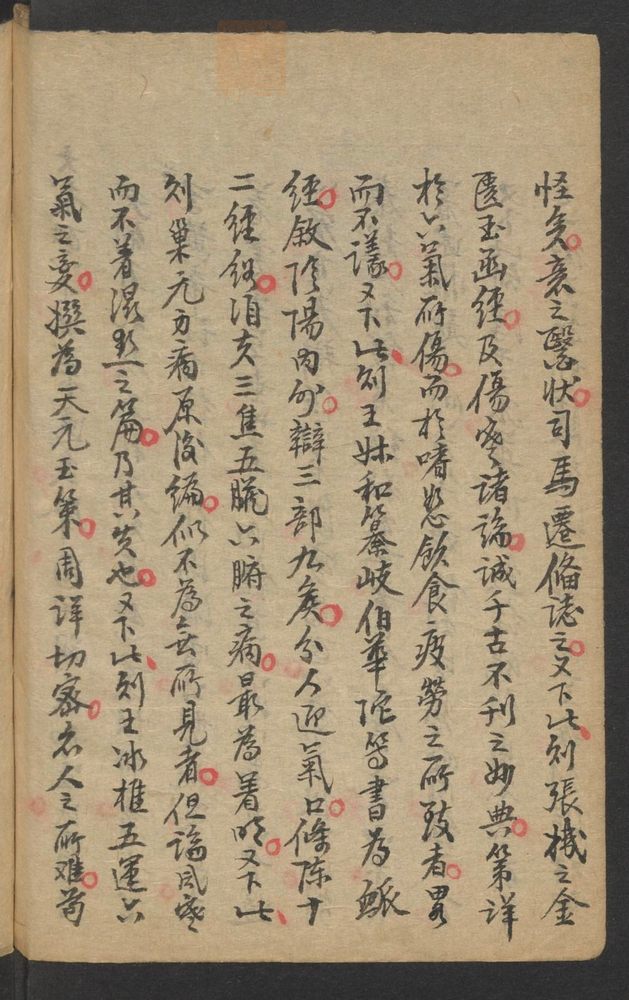 怪矣意之醫狀司馬遷備誌之又下此則張機之金
匱玉函經及傷寒諸論誠千古不刊之妙典第詳
於六氣所傷而於嗜慾飲食疲勞之所致者畧
而不議又下此則王叔和纂岐伯華陀等書為脈
經敘陰陽內外辯三部九矦分人迎氣口條陳十
二經絡洎夫三焦五臟六腑之病最為著明又下此
則巢元方病原候編似不為無所見者但論風寒
而不著濕熱之篇乃其失也又下此則王冰推五運六
氣之變撰為天元玉策周詳切密亦人之所难苟